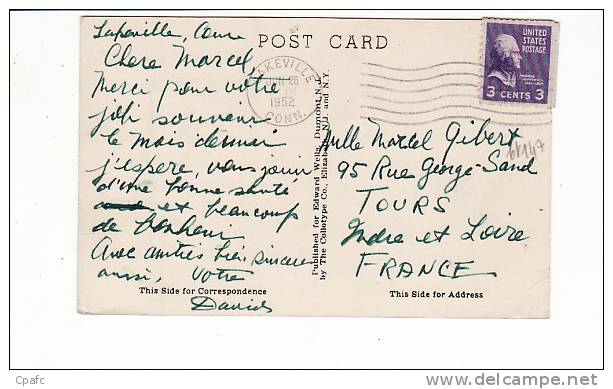 Lakeville, Conn
Chere Marcel,
Merci pour votre
joli souvenir
le mois dernier
j'espere, vous jouir
d'une bonne santé
et beaucoup
de bonheur
Avec amitiés bien sinceres
aussi, Votre
David
This Side for Correspondence
POST CARD
LAKEVILLE
JUN 26
1952
CONN.
Published for Edward Wells, Dumont, N.J.
by The Collotype Co., Elizabeth, N.J. and N.Y.
UNITED
STATES
POSTAGE
3 CENTS 3
Mlle Marcel Gibert
95 Rue George-Sand
TOURS
Indre et Loire
FRANCE
This Side for Address
Cpafc
www.delcampe.net